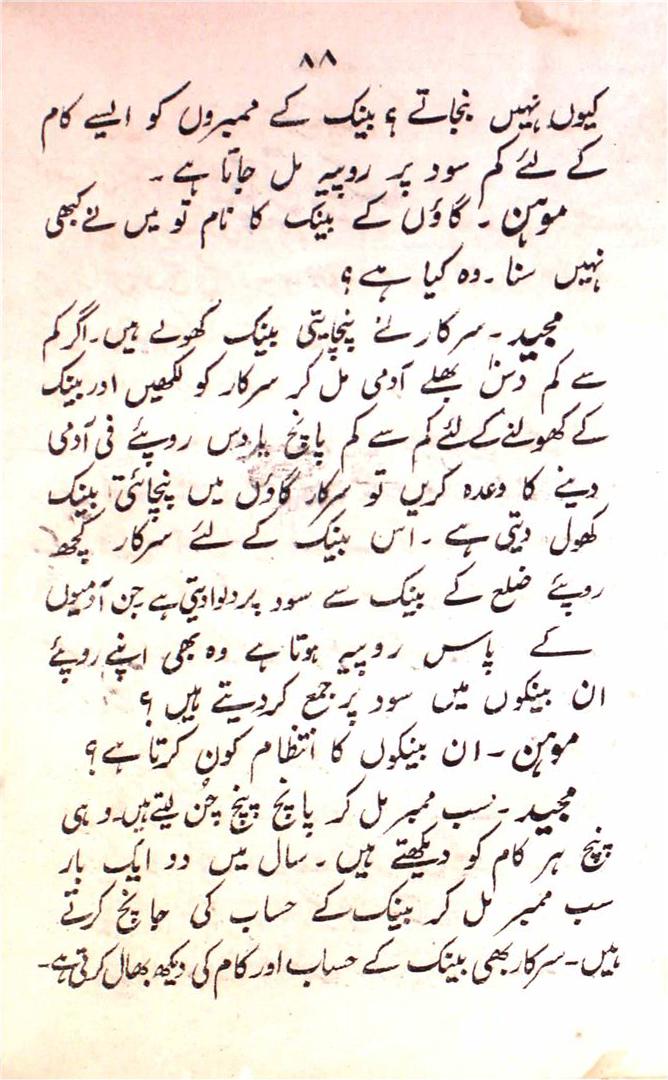 ۸۸
کیوں نہیں بنجاتے ؟ بینک کے ممبروں کو ایسے کام
کے لئے کم سود پر روپیہ مل جاتا ہے ۔
موہن ۔ گاؤں کے بینک کا نام تو میں نے کبھی
نہیں سنا ۔ وہ کیا ہے ؟
مجید ۔ سرکار نے پنچایتی بینک کھولے ہیں ۔ اگر کم
سے کم دس بھلے آدمی مل کر سرکار کو لکھیں اور بینک
کے کھولنے کے لئے کم سے کم پانچ یا دس روپئے فی آدمی
دینے کا وعدہ کریں تو سرکار گاؤں میں پنچائتی بینک
کھول دیتی ہے ۔ اس بینک کے لئے سرکار کچھ
روپئے ضلع کے بینک سے سود پر دلوا دیتی ہے جن آدمیوں
کے پاس روپیہ ہوتا ہے وہ بھی اپنے روپئے
ان بینکوں میں سود پر جمع کر دیتے ہیں ؟
موہن ۔ ان بینکوں کا انتظام کون کرتا ہے ؟
مجید ۔ سب ممبر مل کر پانچ پنچ چُن لیتے ہیں ۔ وہی
پنچ ہر کام کو دیکھتے ہیں ۔ سال میں دو ایک بار
سب ممبر مل کر بینک کے حساب کی جانچ کرتے
ہیں ۔ سرکار بھی بینک کے حساب اور کام کی دیکھ بھال کرتی ہے ۔